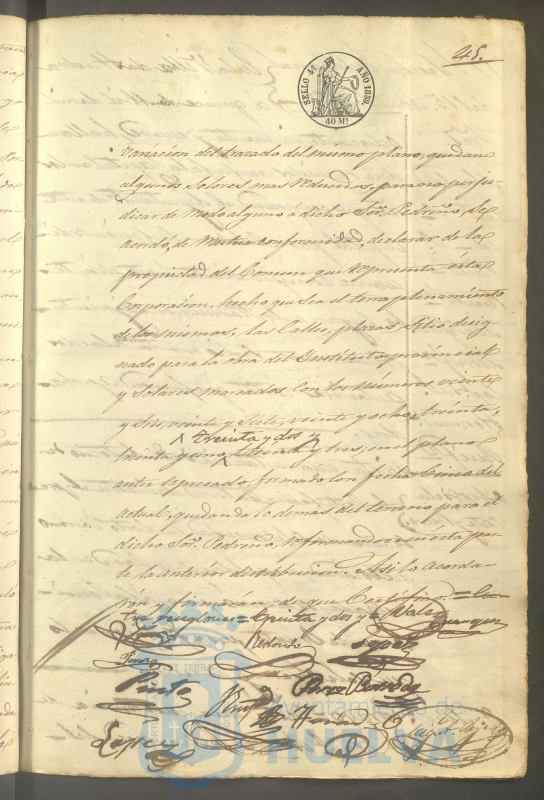 45.
SELLO 4º AÑO 1859
40 Ms.
variacion del trazado del mismo plano, quedan
algunos Solores mas reducidos, para no perju-
dicar de modo alguno á dicho Sor. Pedreño, se
acordó, de mutua conformidad, declarar de la
propiedad del Comun que representa esta
Corporacion, hecho que sea el terraplenamiento
de los mismos, las Calles, plazas, Sitio desig-
nado para la obra del Instituto provincial
y Solares marcados con los numeros veinte
y seis, veinte y siete, veinte y ocho, treinta,
treinta y dos y
treinta y uno, treinta y tres, en el plano
antes espresado, formado con fecha Cinco del
actual, quedando lo demas del terreno para el
dicho Sor. Pedreño, reformando en esta par-
te la anterior distribucion. Asi lo acorda-
rón y firmarón, de que Certifico =
tre renglones = treinta y dos y = Vale
Redondo
Pinto
Perez
Lopez
Ayuntamiento de
HUELVA